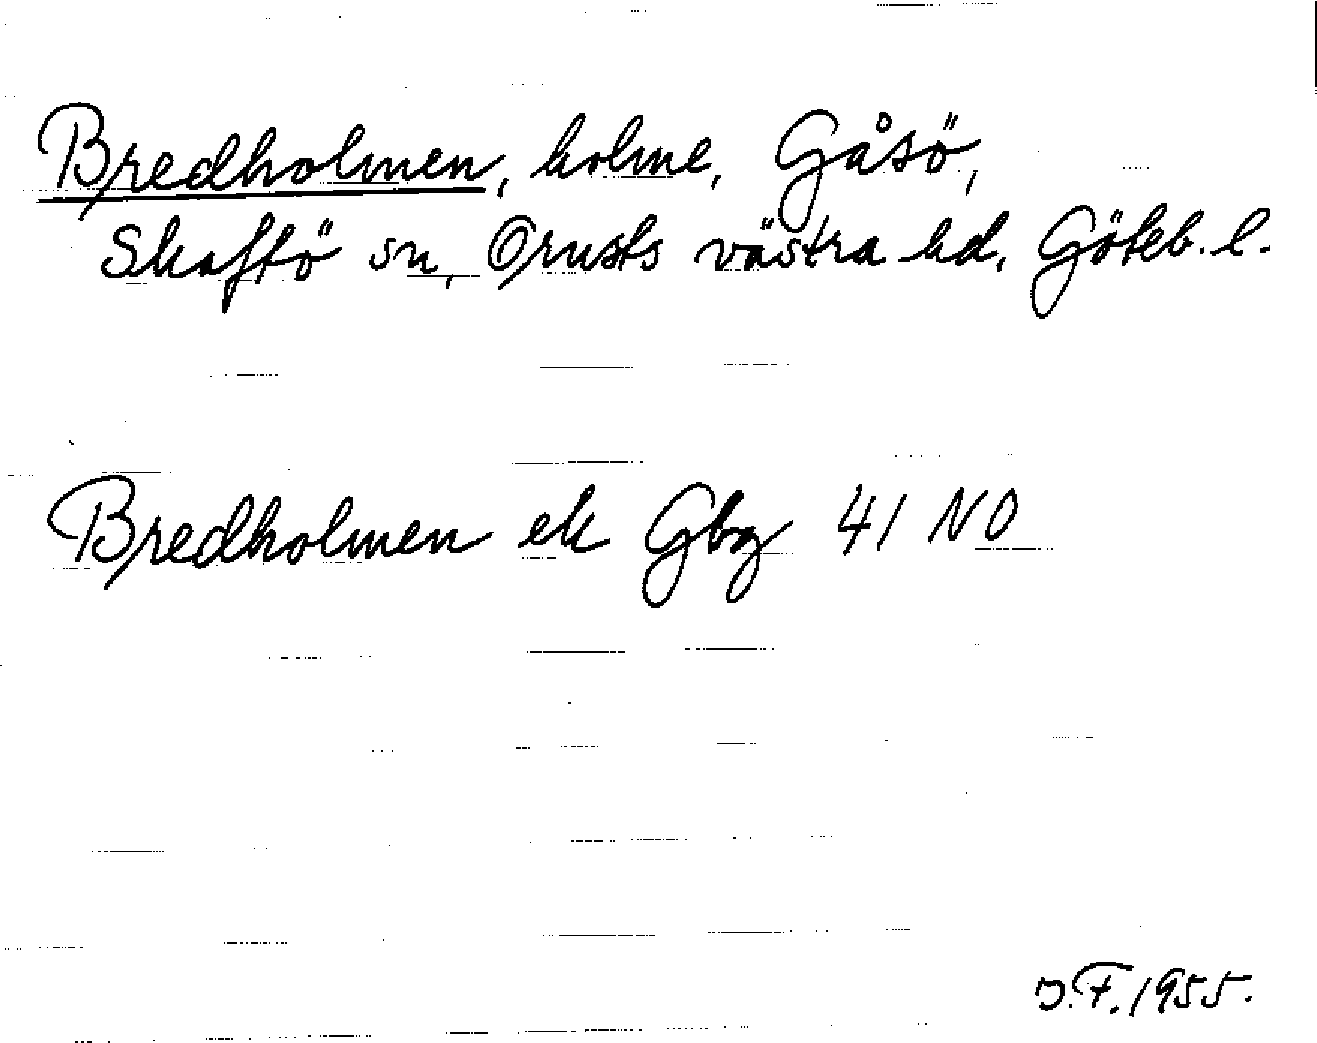 Bredholmen, holme, Gåsö,
Skaftö sn, Orusts västra hd, Göteb. l.
Bredholmen ek Gbg 41 NO
D.F. 1955.